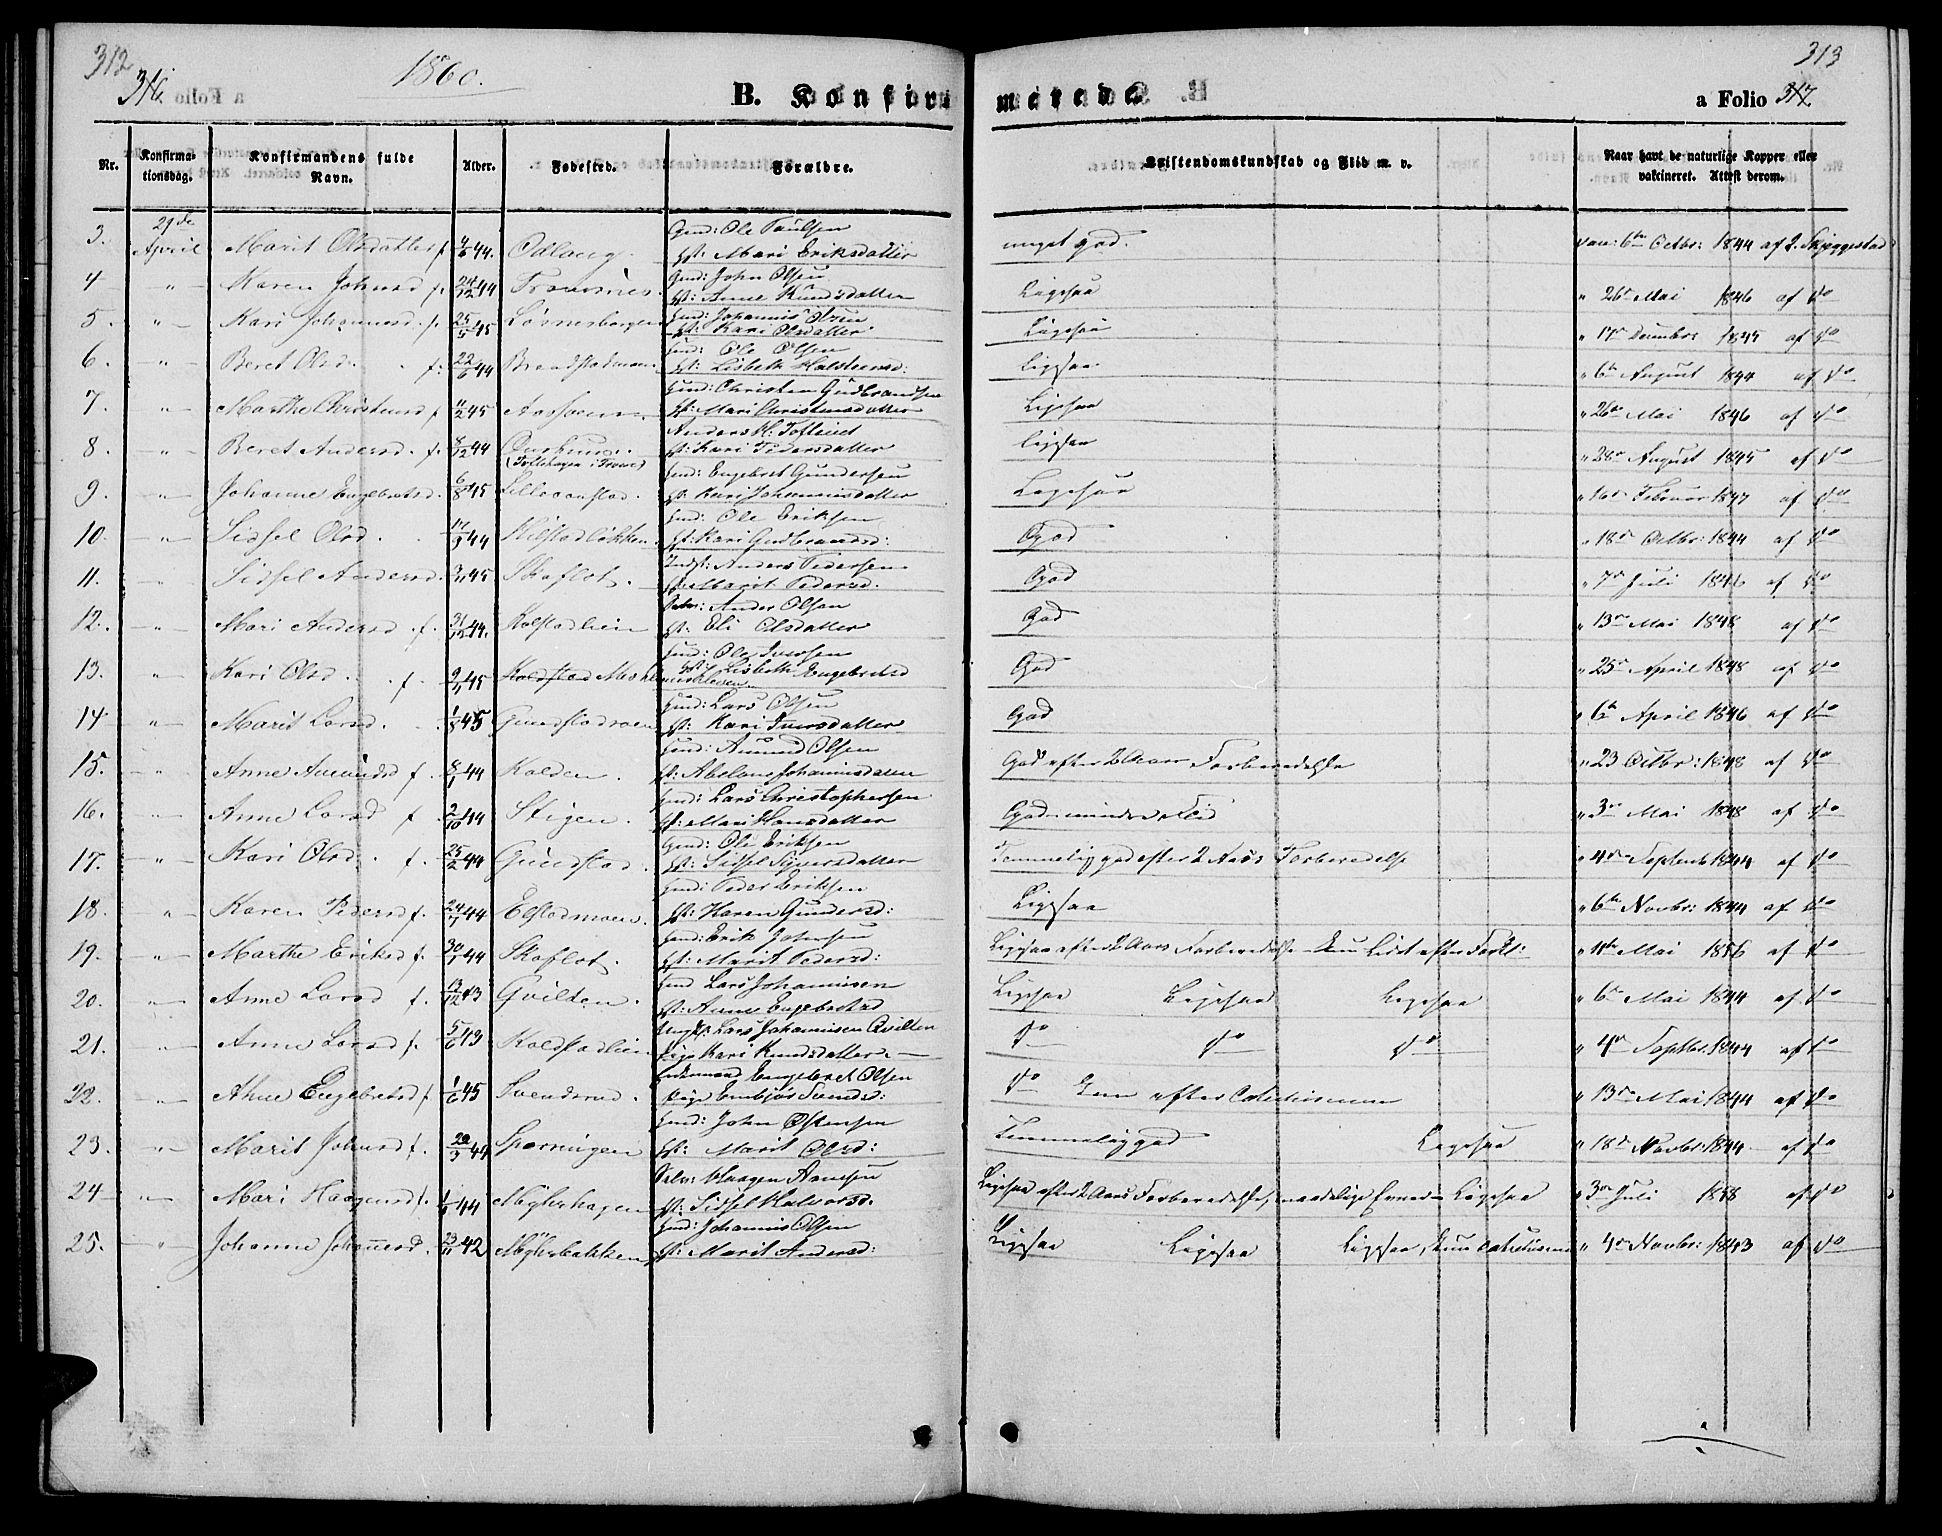 312
316
1860.
B. Konfir
merede
313
a Folio 317
Nr. Konfirma-tionsdag. Konfirmandens fulde Navn. Alder. Fødested. Forældre. Kristendomskundskab og Flid m. v. Naar havt de naturlige Kopper eller vaktineret. Attest derom.
3. 29de April Marit Olsdatter f. 4/6 44. Odlaug. Gmd: Ole Paulsen
Hst: Mari Eriksdatter meget god. vac: 6te Octbr: 1844 af J. Skjeggestad
4 " Karen Johnsd f. 24/12 44 Gmd: John Olsen
Hst: Anne Knudsdatter Ligesaa " 26de Mai 1846 af do
5. " Kari Johannesd. f. 25/5 45 Gmd: Johannis Olsen
Hst: Kari Olsdatter Ligesaa " 17de Decembr 1845 af do
6. " Beret Olsd. f. 22/6 44 Gmd: Ole Olsen
Hst: Lisbeth Halstensd: Ligesaa " 6te August 1844 af do
7. " Marthe Christensd f 11/2 45 Gmd: Christen Gudbrandsen
Hst: Mari Christensdatter Ligesaa " 26de Mai 1846 af do
8. " Beret Andersd. f. 8/12 44 Anders H: Toftlind
Hst: Kari Pedersdatter Ligesaa " 28de August 1845 af do
9. " Johanne Engebretsd. 6/8 45 Gmd: Engebret Gundersen
Hst: Kari Johannisdatter Ligesaa " 16de Februar 1847 af do
10. " Sidsel Olsd. 14/9 44 Kilstadløkken. Gmd: Ole Eriksen
Hst: Kari Gudbrandsd: God " 18de Octbr: 1844 af do
11. " Sidsel Andersd. 45 Skaflot. Anders Pedersen
Hst: Marit Pedersd: God " 7de Juli 1846 af do
12. " Mari Andersd. f. 31/12 44. Kolstadlien Anders Olsen
Hst: Eli Olsdatter God " 13de Mai 1848 af do
13. " Kari Olsd. f. 9/5 45 Gmd: Ole Iversen
Hst: Lisbeth Engebretsd God " 25de April 1848 af do
14 " Marit Larsd. 1/8 45 Gundstadmoen Gmd: Lars Olsen
Hst: Kari Iversdatter God " 6te April 1846 af do
15. " Anne Amundsd f. 8/1 44 Kolden. Gmd: Amund Olsen
Hst: Abelone Johannisdatter God efter 2 Aars Forberedelse " 23 Octbr: 1848 af do
16. " Anne Larsd f. 2/10 44 Stigen. Gmd: Lars Christophersen
Hst: Mari Hansdatter God mindre Flid " 3de Mai 1848 af do
17. " Kari Olsd. f. 25/2 44 Gundstad. Gmd: Ole Eriksen
Hst: Sidsel Syversdatter Temmelig god efter 2 Aars Forberedelse " 4de Septemb 1844 af do
18. " Karen Pedersd f. 24/7 44 Elstadmoen. Gmd: Peder Eriksen
Hst: Karen Gundersd: Ligesaa " 6te Novbr: 1844 af do
19. " Marthe Eriksd f. 30/1 44 Skaflot. Gmd: Erik Johnsen
Hst: Marit Pedersd: Ligesaa efter 2 Aars Forberedelse " 11te Mai 1856 af do
20. " Anne Larsd f. 13/12 43 Qvilten. Gmd Lars Johannisen
Hst: Anne Engebretsd Ligesaa Ligesaa Ligesaa " 6te Mai 1844 af do
21. " Anne Larsd f. 5/6 43 Koldstadlien Lars Johannisen Qvilten
Pige Kari Knudsdatter do do do " 4de Septbr. 1844 af do
22. " Anne Engebretsd f. 1/6 45 Svendsrud. Ungmand Engebret Olsen
Pige Embjør Svendsd: do Kun efter Catechismen " 13de Mai 1844 af do
23. " Marit Johnsd f. 20/3 44 Gmd: John Ostensen
Hst: Marit Olsd: Temmelig god Ligesaa " 18de Novbr: 1844 af do
24 " Mari Haagensd f. 44 Myhrhagen Haagen Arnesen
Hst: Sidsel Halvorsd. Ligesaa efter 2 Aars Forberedelse, maadelige Evner Ligesaa " 3de Juli 1858 af do
25. " Johanne Johannesd. 23/11 42 Myhrbakken Gmd: Johannis Olsen
Hst: Marit Andersd: Ligesaa Ligesaa Ligesaa, kun Catechismen " 4de Novbr: 1843 af do